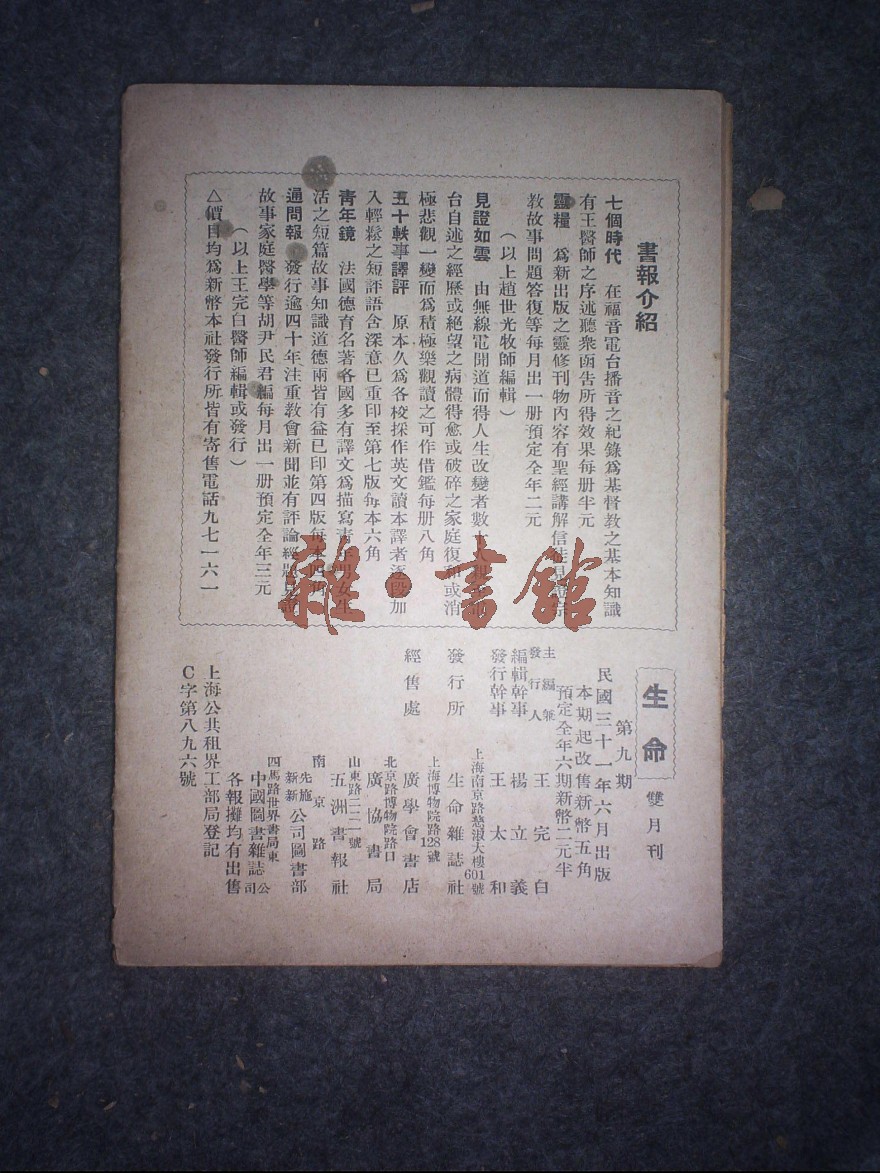 書報介紹
七個時代　在福音電台播音之紀錄爲基督教之基本知識
有王醫師之序述聽衆函告所得效果每册半元
靈糧　爲新出版之靈修刊物內容有聖經講解信徒見證宗
教故事問題答復等每月出一册預定全年二元
（以上趙世光牧師編輯）
見證如雲　由無線電聞道而得人生改變者數十人親至電
台自述之經歷或絕望之病體得愈或破碎之家庭復和或消
極悲觀一變而爲積極樂觀讀之可作借鑑每册八角
五十軼事譯評　原本久爲各校採作英文讀本譯者逐段加
入輕鬆之短評語含深意已重印至第七版每本六角
靑年鏡　法國德育名著各國多有譯文爲描寫靑年男女生
活之短篇故事知識道德兩皆有益已印第四版每本四角
通問報　發行逾四十年注重教會新聞並有評論經題見證
故事家庭醫學等胡尹民君編每月出一册預定全年三元
（以上王完白醫師編輯或發行）
△價目均爲新幣本社發行所皆有寄售電話九七一六一
生命　雙月刊
第九期
民國三十一年六月出版
本期起改售新幣五角
預定全年六期新幣二元半
主編兼發行人　王完白
編輯幹事　楊立義
發行幹事　王太和
上海南京路慈淑大樓601號
發行所　生命雜誌社
上海博物院路128號
經售處　廣學會書店
北京路博物院路口
廣協書局
山東路二二一號
五洲書報社
南京路
先施新新公司圖書部
四馬路世界書局東
中國圖書雜誌公司
各報攤均有出售
上海公共租界工部局登記
C字第八九六號
雜·書館